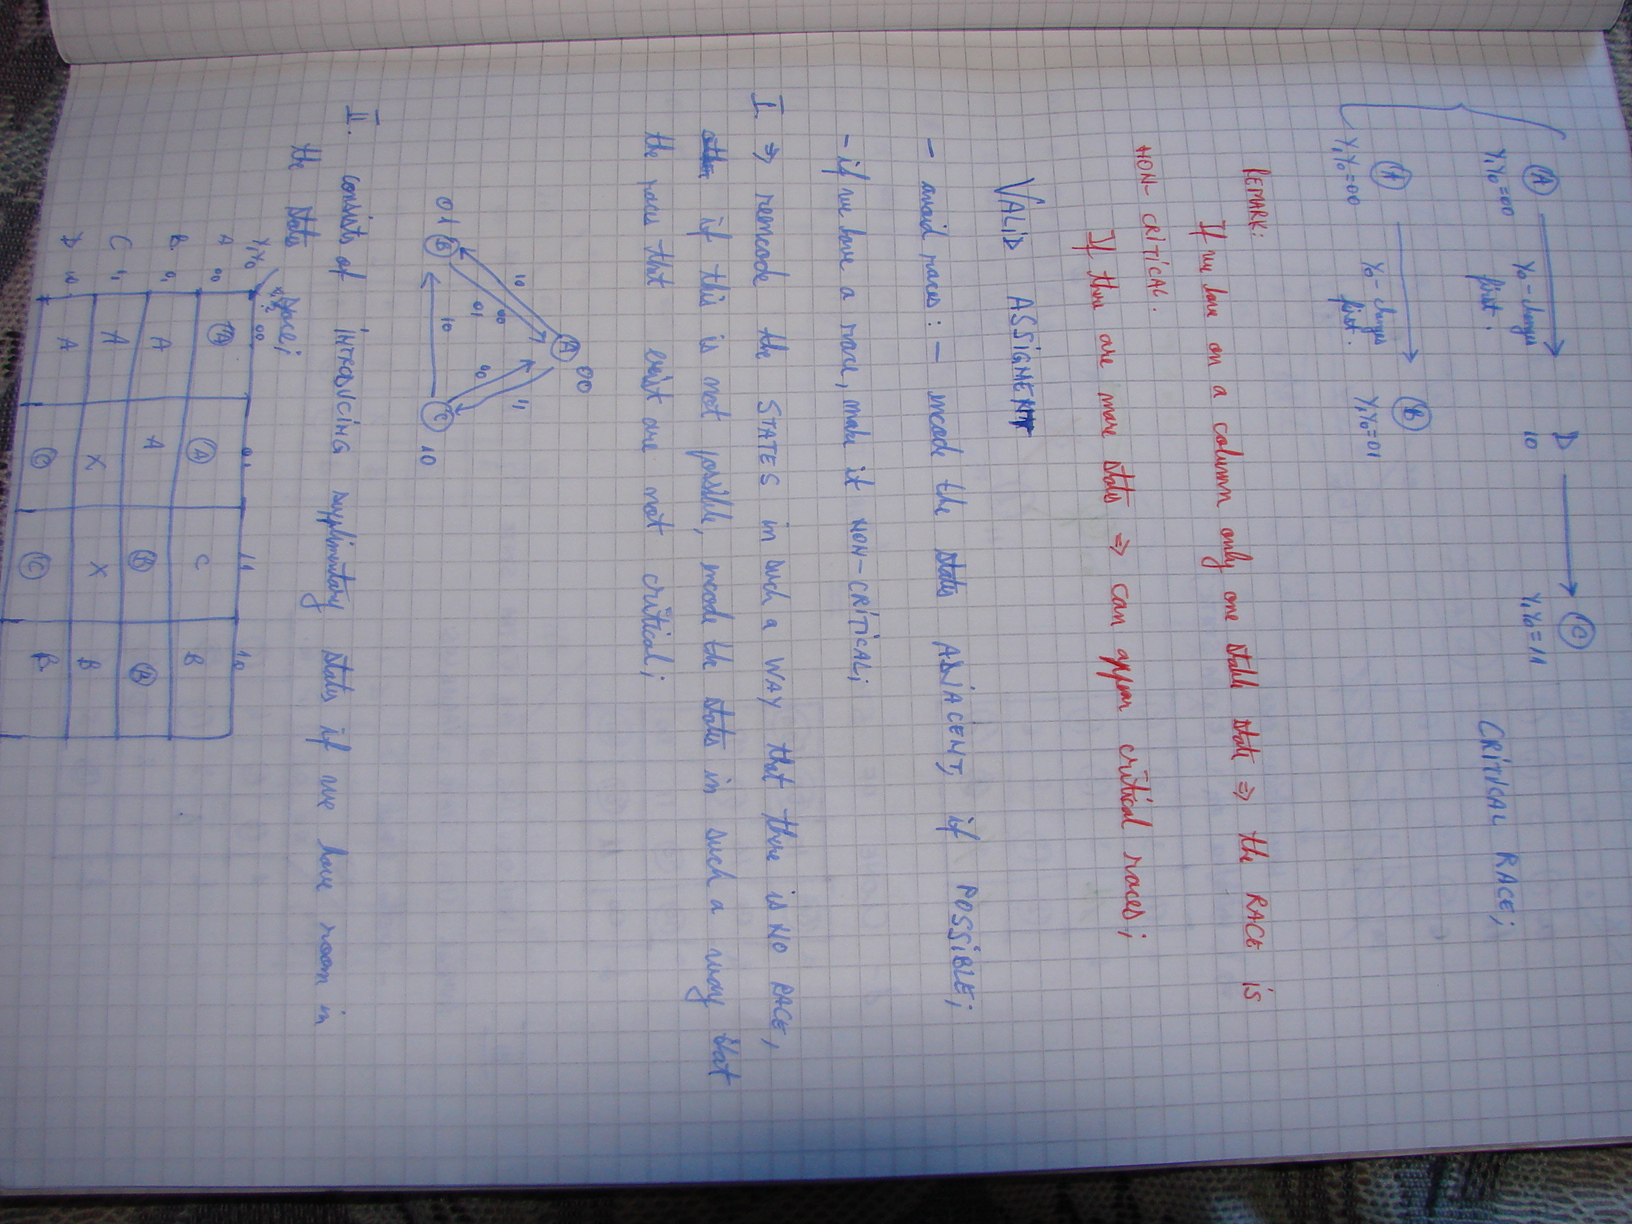 A → D → C
Y₁Y₀=00 Y₀-changes 10 Y₁Y₀=11
first.
CRITICAL RACE;
A → B
Y₁Y₀=00 Y₀-changes Y₁Y₀=01
first.
REMARK:
If we have on a column only one stable state ⇒ the RACE is
NON-CRITICAL.
If there are more states ⇒ can appear critical races;
VALID ASSIGMENT
- avoid races: - encode the states ADJACENT, if POSSIBLE;
- if we have a race, make it NON-CRITICAL;
I. ⇒ reencode the STATES in such a WAY that there is NO RACE,
if this is not possible, encode the states in such a way that
the races that exist are not critical;
A 00
10 00 01 00 11
01 B 10 C 10
II. consists of INTRODUCING supplimentary states if we have room in
the state space;
Y₁Y₀ 00 01 11 10
A 00 A A C B
B 01 A A B B
C 11 A X X B
D 10 A C C B